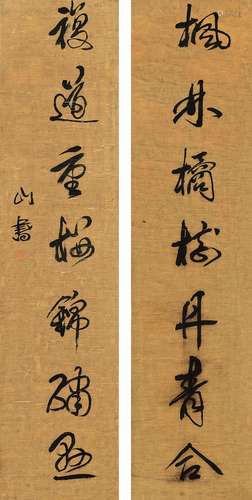 楓林橘樹丹青合
複道重樓錦繡懸
山書